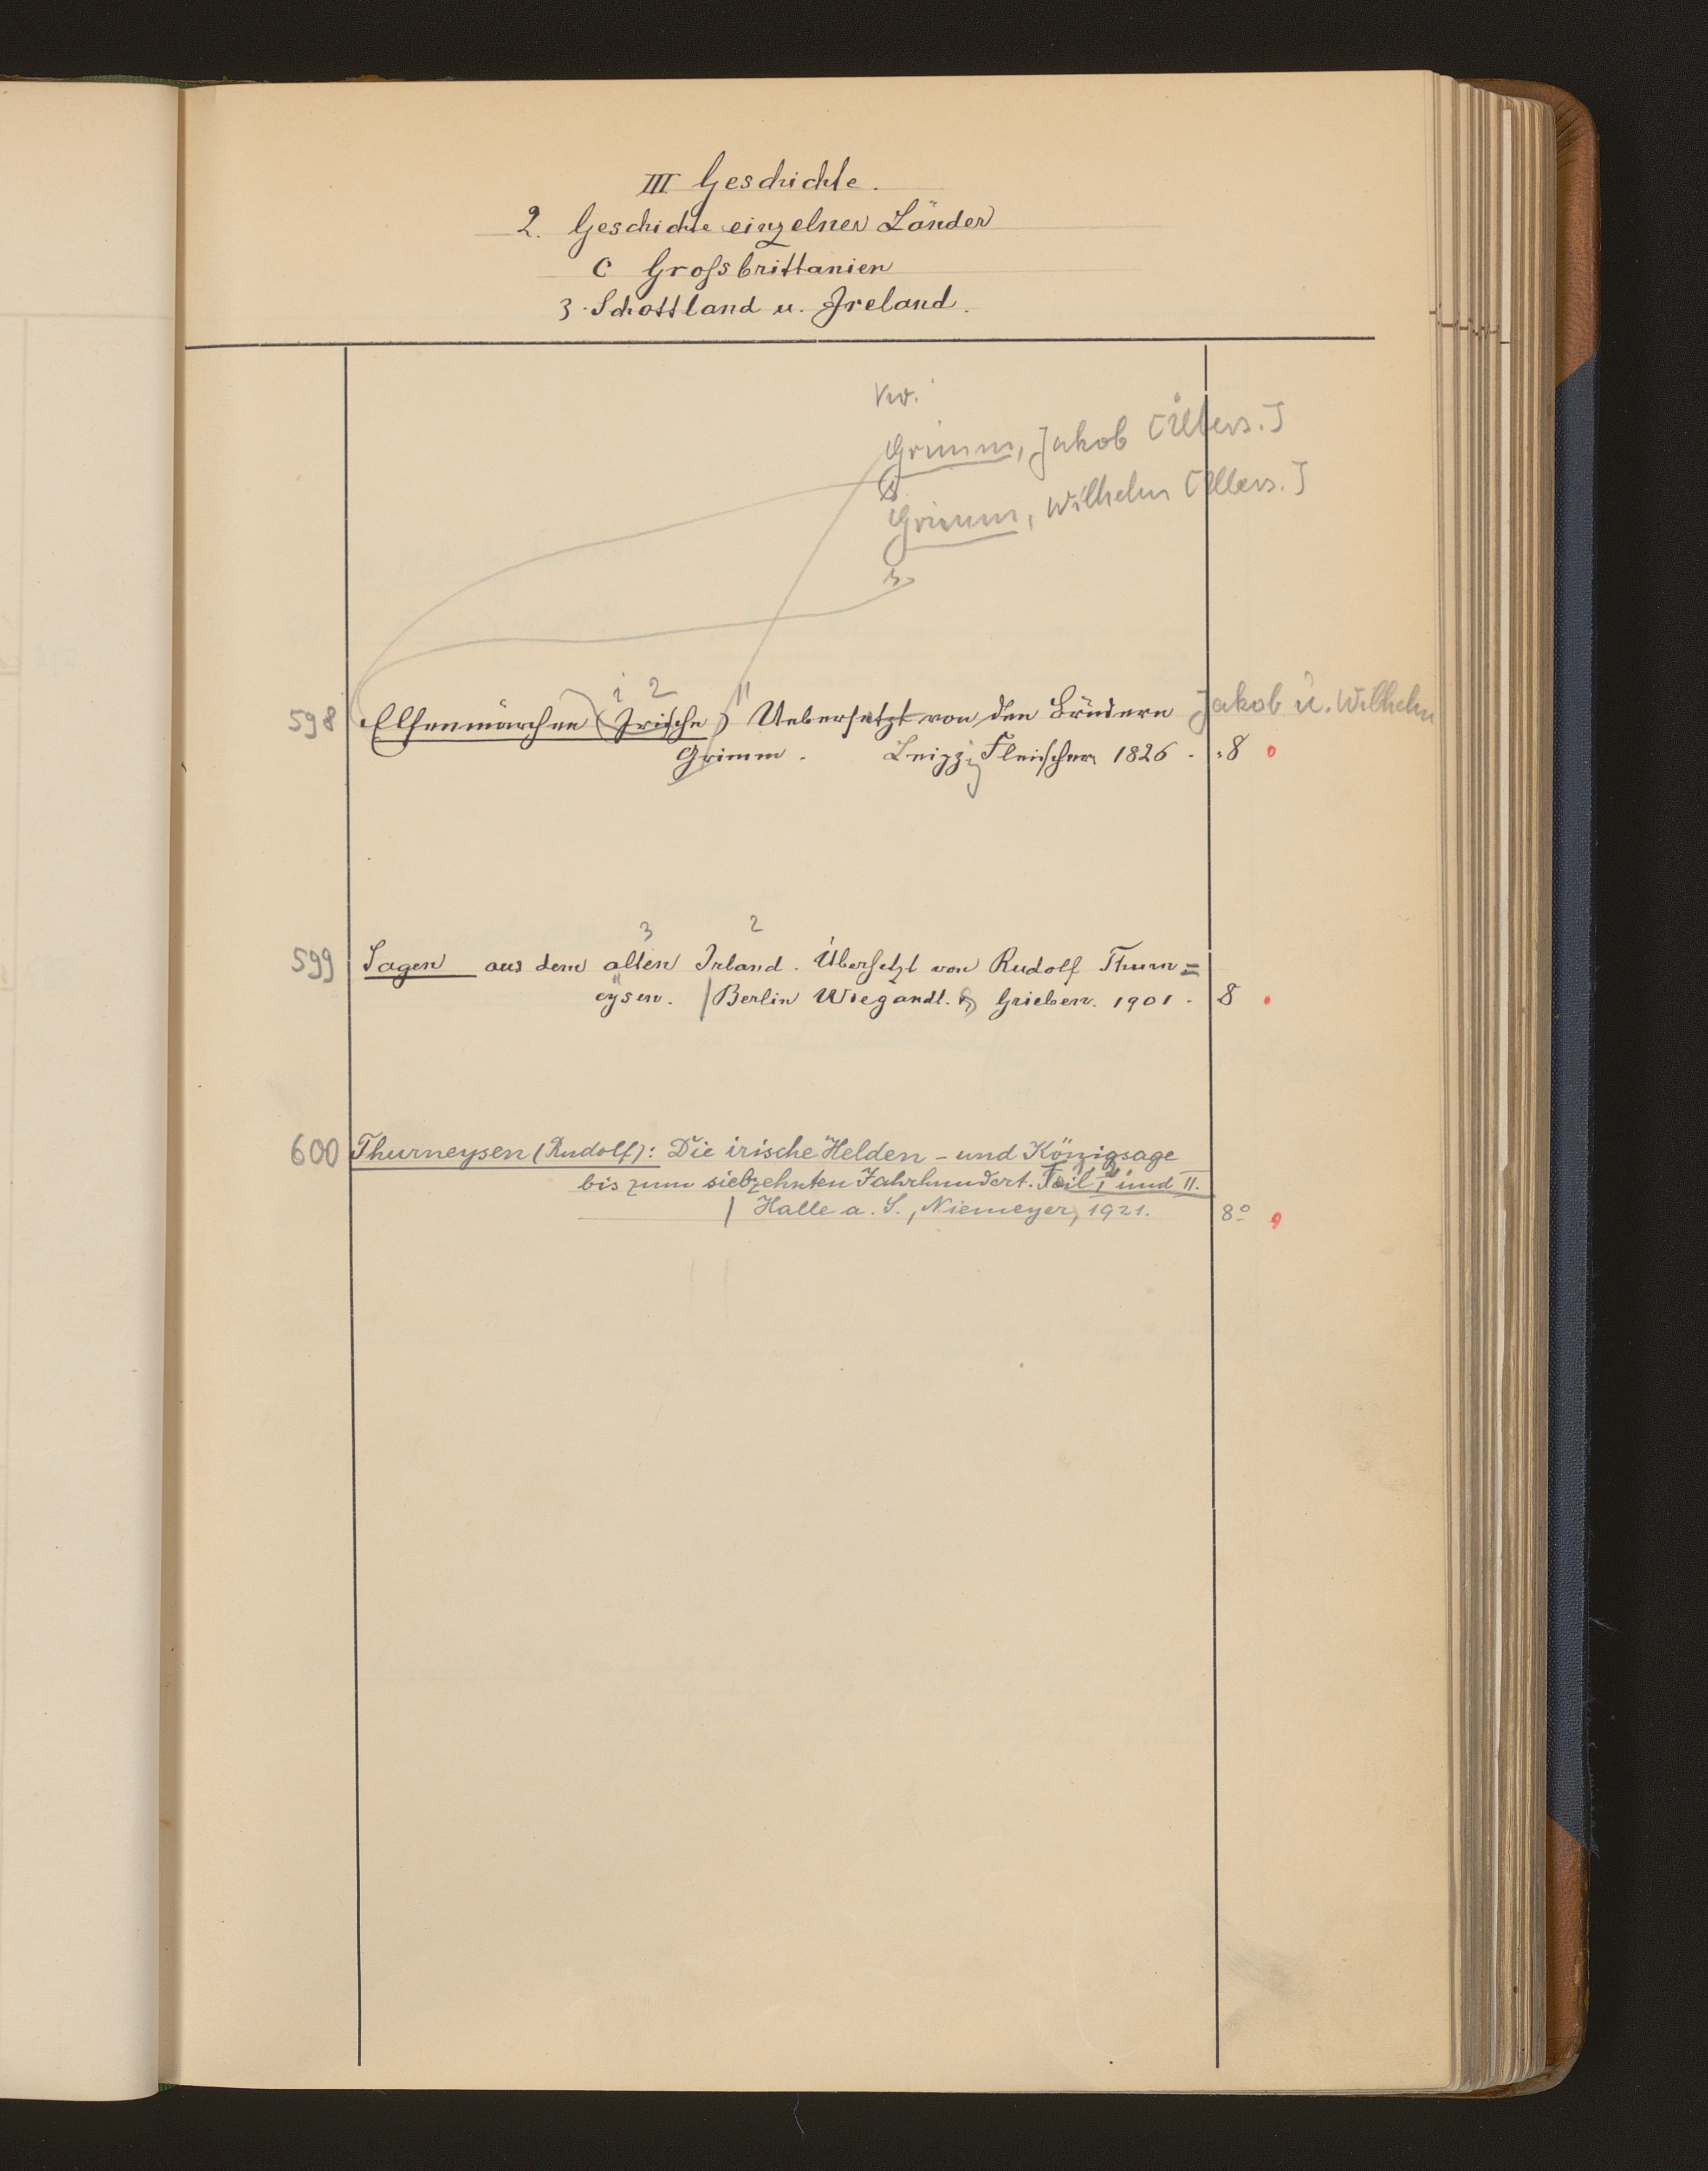 III Geschichte.
2. Geschichte einzelner Länder
C Großbrittanien
3. Schottland u. Ireland.
Vw.
Grimm, Jakob [Übers.]
Grimm, Wilhelm [Übers.]
i 2
598 Elfenmärchen (Irische) Uebersetzt von den Brüdern Jakob u. Wilhelm
Grimm. Leipzig Fleischer 1826. 8
3 2
599 Sagen aus dem alten Irland. Übersetzt von Rudolf Thurn=
eysen. | Berlin Wiegandt. & Grieben. 1901. 8
600 Thurneysen (Rudolf): Die irische Helden- und Königsage
bis zum siebzehnten Jahrhundert. Teil I und II.
| Halle a. S., Niemeyer, 1921. 8°